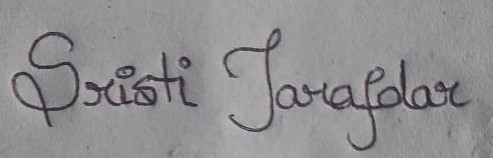 Sristi Tarafdar